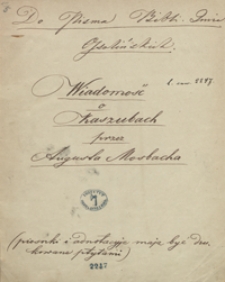 Do Pisma Bibl. Imie
Ossolińskich.
Wiadomość
o
Kaszubach
przez
Augusta Mosbacha
(piosnki i adnotacyje mają być dru-
kowane petytami)
2247